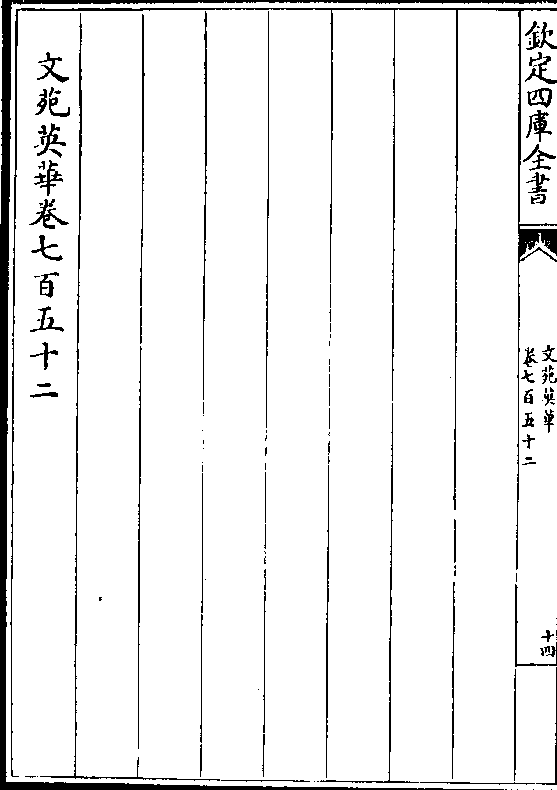 欽定四庫全書
文苑英華
卷七百五十二
十四
文苑英華卷七百五十二